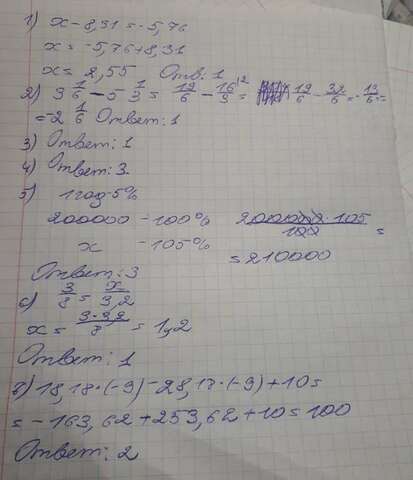 1) x-8,31=-5,76
x=-5,76+8,31
x=2,55 Отв: 1
2) 3 1/6 - 5 1/3 = 19/6 - 16/3 ^12 = 19/6 - 32/6 = -13/6 =
= -2 1/6 Ответ: 1
3) Ответ: 1
4) Ответ: 3
5) 1 год-5%
200000 - 100% 200000·105/100 =
x - 105%
=210000
Ответ: 3
6) 3/8 = x/3,2
x = 3·3,2/8 = 1,2
Ответ: 1
7) 18,18·(-9)-28,18·(-9)+10=
=-163,62+253,62+10=100
Ответ: 2